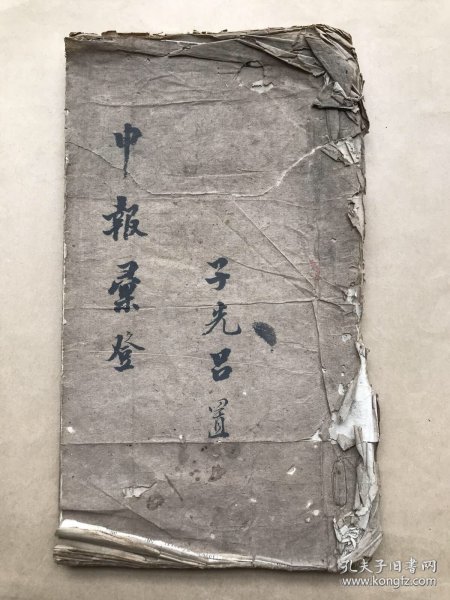 子先呂置
申報彙登
孔夫子旧书网
www.kongfz.com